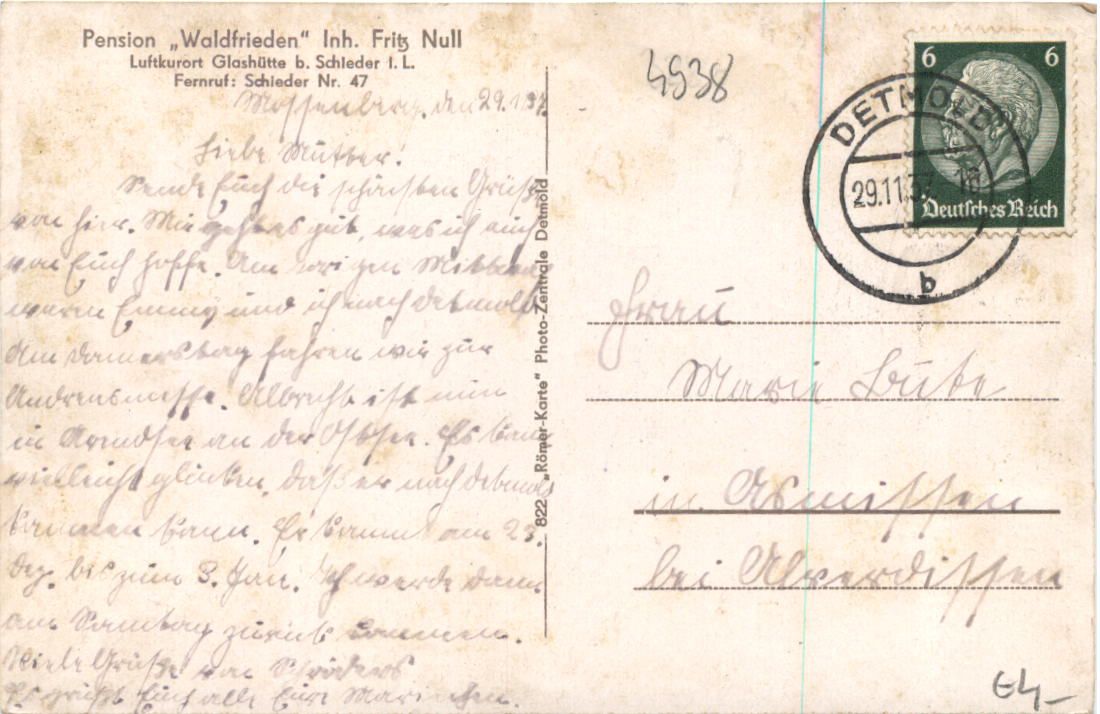 Pension „Waldfrieden" Inh. Fritz Null
Luftkurort Glashütte b. Schieder i. L.
Fernruf: Schieder Nr. 47
Mossenberg, den 29.11.37.
Liebe Mutter!
Sende Euch die schönsten Grüße
von hier. Mir geht es gut, was ich auch
von Euch hoffe. Am vorigen Mittwoch
waren Emmy und ich nach Detmold
Am Donnerstag fahren wir zur
Andreasmesse. Albrecht ist nun
in Arendsee an der Ostsee. Es kann
vielleicht glücken, daß er nach Detmold
kommen kann. Er kommt am 23.
Dez. bis zum 3. Jan. Ich werde dann
am Sonntag zurück kommen.
Viele Grüße von Schröders
Es grüßt Euch alle Eure Mariechen.
822 „Römer-Karte" Photo-Zentrale Detmold
4938
6 6
Deutsches Reich
DETMOLD
29.11.37
b
Frau
Marie
in Asmissen
bei Alverdissen